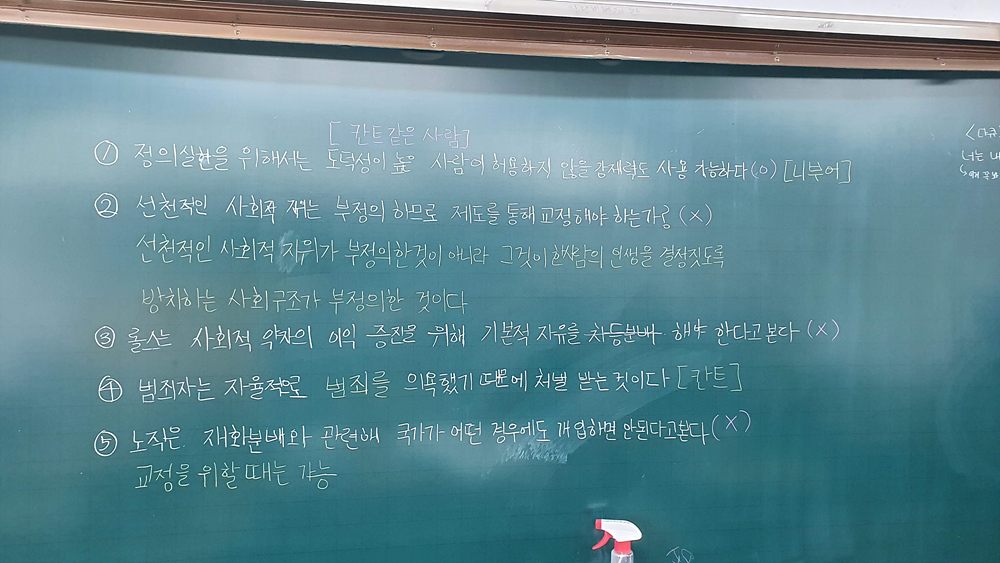 [칸트같은 사람]
① 정의실현을 위해서는 도덕성이 높은 사람이 허용하지 않을 강제력도 사용 가능하다(O) [니부어]
② 선천적인 사회적 지위는 부정의 하므로 제도를 통해 교정해야 하는가? (X)
선천적인 사회적 지위가 부정의한것이 아니라 그것이 한사람의 인생을 결정짓도록
방치하는 사회구조가 부정의한 것이다
③ 롤스는 사회적 약자의 이익 증진을 위해 기본적 자유를 차등분배 해야 한다고본다 (X)
④ 범죄자는 자율적으로 범죄를 의욕했기 때문에 처벌 받는것이다 [칸트]
⑤ 노직은 재화분배와 관련해 국가가 어떤 경우에도 개입하면 안된다고본다 (X)
교정을 위할 때는 가능
너는 내